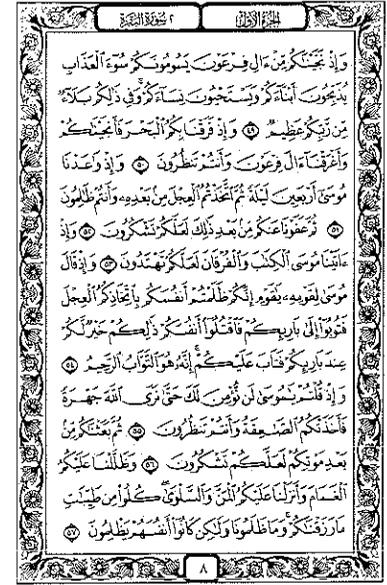 الجزء الأول
٢ سورة البقرة
وَإِذْ نَجَّيْنَٰكُم مِّنْ ءَالِ فِرْعَوْنَ يَسُومُونَكُمْ سُوٓءَ ٱلْعَذَابِ
يُذَبِّحُونَ أَبْنَآءَكُمْ وَيَسْتَحْيُونَ نِسَآءَكُمْ ۚ وَفِى ذَٰلِكُم بَلَآءٌ
مِّن رَّبِّكُمْ عَظِيمٌ ٤٩ وَإِذْ فَرَقْنَا بِكُمُ ٱلْبَحْرَ فَأَنجَيْنَٰكُمْ
وَأَغْرَقْنَآ ءَالَ فِرْعَوْنَ وَأَنتُمْ تَنظُرُونَ ٥٠ وَإِذْ وَٰعَدْنَا
مُوسَىٰٓ أَرْبَعِينَ لَيْلَةً ثُمَّ ٱتَّخَذْتُمُ ٱلْعِجْلَ مِنۢ بَعْدِهِۦ وَأَنتُمْ ظَٰلِمُونَ
٥١ ثُمَّ عَفَوْنَا عَنكُم مِّنۢ بَعْدِ ذَٰلِكَ لَعَلَّكُمْ تَشْكُرُونَ ٥٢ وَإِذْ
ءَاتَيْنَا مُوسَى ٱلْكِتَٰبَ وَٱلْفُرْقَانَ لَعَلَّكُمْ تَهْتَدُونَ ٥٣ وَإِذْ قَالَ
مُوسَىٰ لِقَوْمِهِۦ يَٰقَوْمِ إِنَّكُمْ ظَلَمْتُمْ أَنفُسَكُم بِٱتِّخَاذِكُمُ ٱلْعِجْلَ
فَتُوبُوٓا۟ إِلَىٰ بَارِئِكُمْ فَٱقْتُلُوٓا۟ أَنفُسَكُمْ ذَٰلِكُمْ خَيْرٌ لَّكُمْ
عِندَ بَارِئِكُمْ فَتَابَ عَلَيْكُمْ ۚ إِنَّهُۥ هُوَ ٱلتَّوَّابُ ٱلرَّحِيمُ ٥٤
وَإِذْ قُلْتُمْ يَٰمُوسَىٰ لَن نُّؤْمِنَ لَكَ حَتَّىٰ نَرَى ٱللَّهَ جَهْرَةً
فَأَخَذَتْكُمُ ٱلصَّٰعِقَةُ وَأَنتُمْ تَنظُرُونَ ٥٥ ثُمَّ بَعَثْنَٰكُم مِّنۢ
بَعْدِ مَوْتِكُمْ لَعَلَّكُمْ تَشْكُرُونَ ٥٦ وَظَلَّلْنَا عَلَيْكُمُ
ٱلْغَمَامَ وَأَنزَلْنَا عَلَيْكُمُ ٱلْمَنَّ وَٱلسَّلْوَىٰ ۖ كُلُوا۟ مِن طَيِّبَٰتِ
مَا رَزَقْنَٰكُمْ ۖ وَمَا ظَلَمُونَا وَلَٰكِن كَانُوٓا۟ أَنفُسَهُمْ يَظْلِمُونَ ٥٧
٨